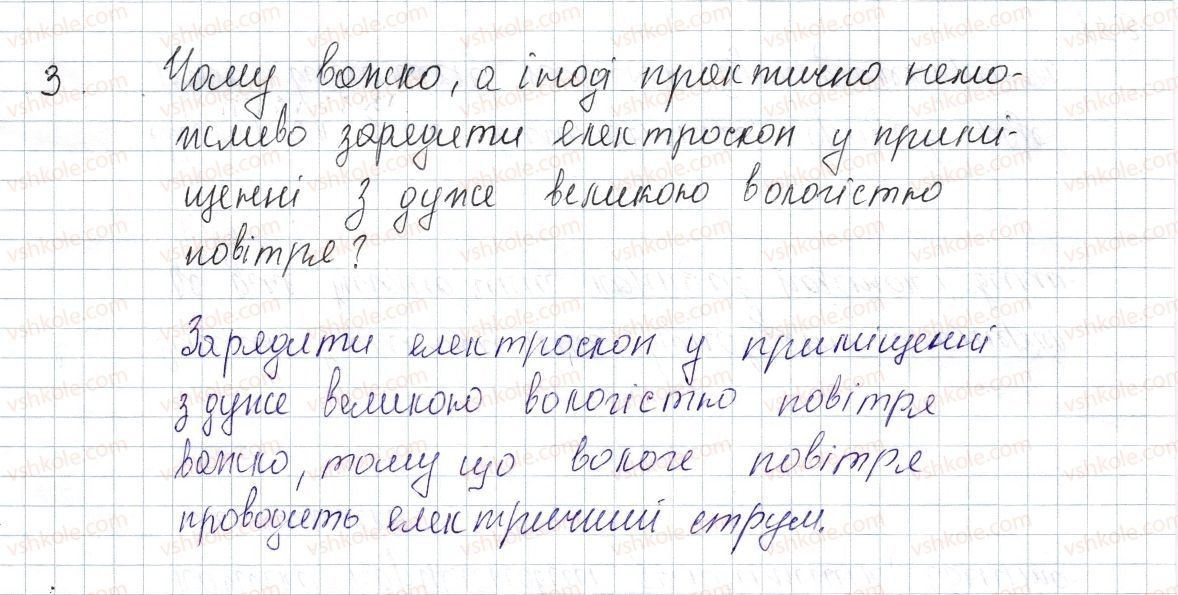 3 Чому важко, а іноді практично немо-
жливо зарядити електроскоп у примі-
щенні з дуже великою вологістю
повітря?
Зарядити електроскоп у приміщенні
з дуже великою вологістю повітря
важко, тому що вологе повітря
проводить електричний струм.